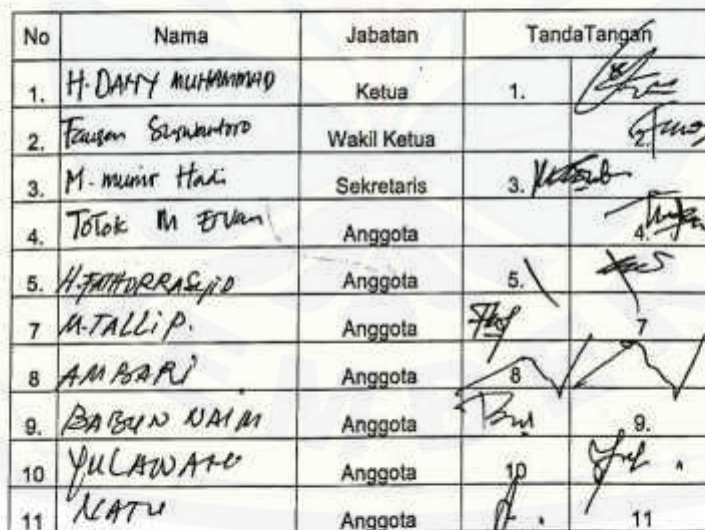 No Nama Jabatan TandaTangan
1. H. DANY MUHAMMAD Ketua 1.
2. Fauzan Siswantoro Wakil Ketua 2.
3. M. munir Hadi Sekretaris 3.
4. TOTOK M Anggota 4.
5. H. FATHORRASJID Anggota 5.
7 M. TALLIP. Anggota 7
8 AMBARI Anggota 8
9. BABUN NAIM Anggota 9.
10 Anggota 10
11 NATU Anggota 11